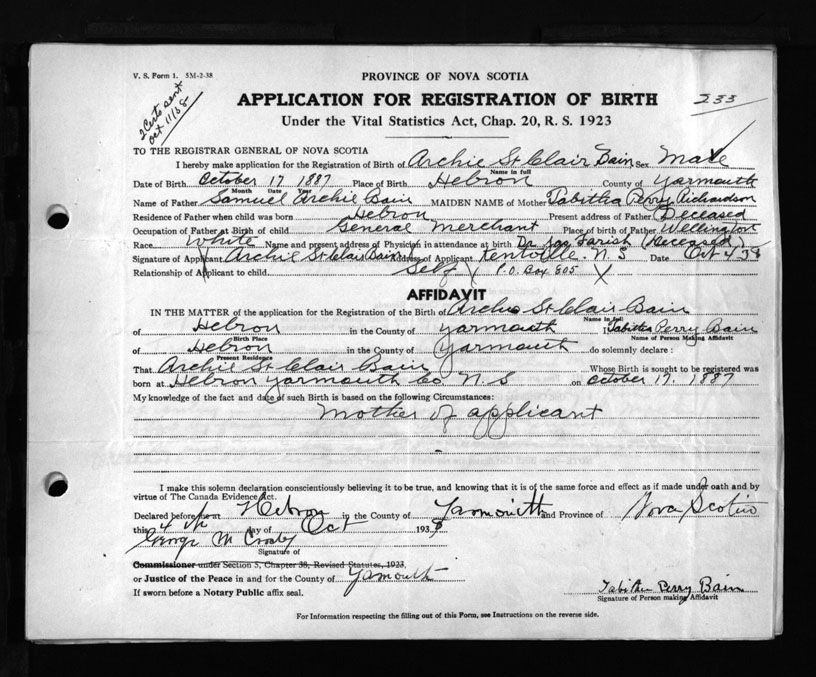 V. S. Form 1. 5M-2-38
PROVINCE OF NOVA SCOTIA
2 Certs sent
Oct 11/38
APPLICATION FOR REGISTRATION OF BIRTH
233
Under the Vital Statistics Act, Chap. 20, R. S. 1923
TO THE REGISTRAR GENERAL OF NOVA SCOTIA
I hereby make application for the Registration of Birth of Archie St Clair Bain Sex Male
Name in full
Date of Birth October 17 1887 Place of Birth Hebron County of Yarmouth
Month Date Year
Name of Father Samuel Archie Bain MAIDEN NAME of Mother Tabitha Perry Richardson
Residence of Father when child was born Hebron Present address of Father Deceased
Occupation of Father at Birth of child General Merchant Place of birth of Father Wellington
Race White Name and present address of Physician in attendance at birth Dr Jas Farish (Deceased)
Signature of Applicant Archie St Clair Bain Address of Applicant Kentville N.S Date Oct 4 38
Relationship of Applicant to child Self P.O. Box 805
AFFIDAVIT
IN THE MATTER of the application for the Registration of the Birth of Archie St Clair Bain
Name in full
of Hebron in the County of Yarmouth I Tabitha Perry Bain
Birth Place Name of Person Making Affidavit
of Hebron in the County of Yarmouth do solemnly declare :
Present Residence
That Archie St Clair Bain Whose Birth is sought to be registered was
born at Hebron Yarmouth Co N. S on October 17. 1887
My knowledge of the fact and date of such Birth is based on the following Circumstances:
Mother of applicant
I make this solemn declaration conscientiously believing it to be true, and knowing that it is of the same force and effect as if made under oath and by
virtue of The Canada Evidence Act.
Declared before me at Hebron in the County of Yarmouth and Province of Nova Scotia
this 4th day of Oct 1938
George M Crosby
Signature of
Commissioner under Section 5, Chapter 38, Revised Statutes, 1923,
or Justice of the Peace in and for the County of Yarmouth
If sworn before a Notary Public affix seal.
Tabitha Perry Bain
Signature of Person making Affidavit
For Information respecting the filling out of this Form, see Instructions on the reverse side.